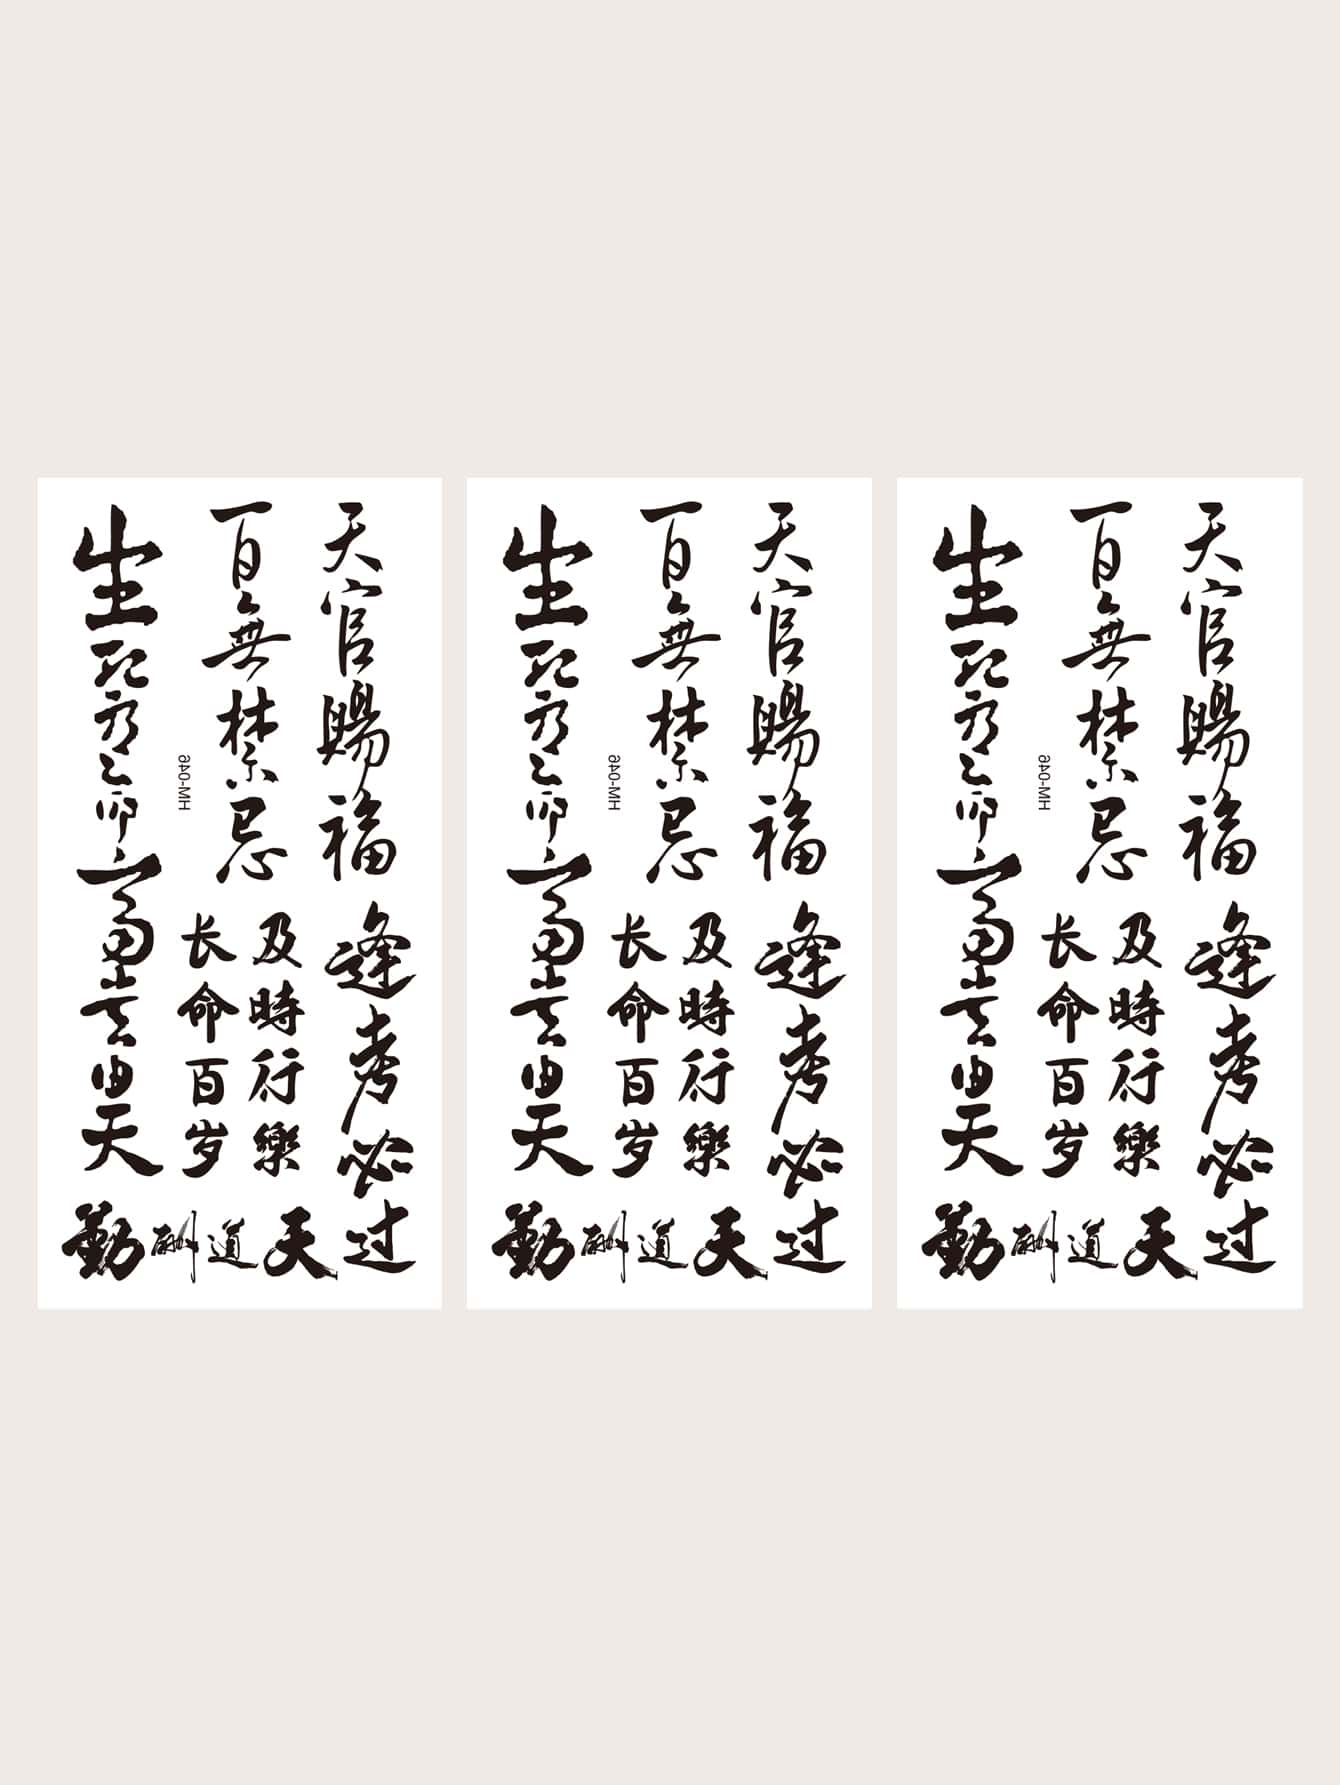 天官賜福
百無禁忌
生死有命富貴由天
HM-046
逢考必过
及時行樂
长命百岁
天道酬勤
天官賜福
百無禁忌
生死有命富貴由天
HM-046
逢考必过
及時行樂
长命百岁
天道酬勤
天官賜福
百無禁忌
生死有命富貴由天
HM-046
逢考必过
及時行樂
长命百岁
天道酬勤